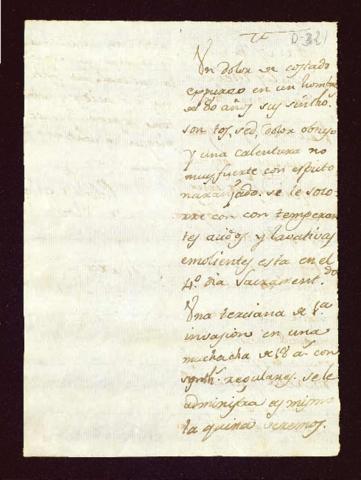 D-321
Un dolor de costado
espureo en un hombre
de 80 años sus sintho.
son tos, sed, dolor obtuso
y una calentura no
muy fuerte con esputo
naranjado. se le soco-
rre con con temperan
tes acidos y lavativas
emolientes esta en el
4.º dia Sacrament.do
Una terciana de 1.a
invasion en una
muchacha de 18 a.s con
synth.s regulares. se le
administra
la quina veremos.